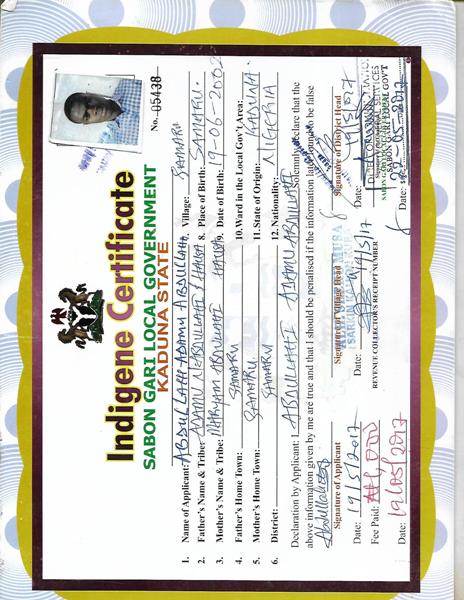 No. 05438
Indigene Certificate
SABON GARI LOCAL GOVERNMENT
KADUNA STATE
1. Name of Applicant: ABDULLAHI ADAMU ABDULLAHI
7. Village: SAMARU
2. Father's Name & Tribe: ADAMU ABDULLAHI HAUSA
8. Place of Birth: SAMARU.
3. Mother's Name & Tribe: MARYAM ABDULLAHI HAUSA
9. Date of Birth: 19-06-2002
4. Father's Home Town: SAMARU
10. Ward in the Local Gov't Area:
5. Mother's Home Town: SAMARU.
11. State of Origin: KADUNA.
6. District: SAMARU
12. Nationality: NIGERIA
Declaration by Applicant: I ABDULLAHI ADAMU ABDULLAHI Solemnly declare that the
above information given by me are true and that I should be penalised if the information later found to be false
Signature of Applicant
Signature of Village Head
Signature of District Head
Date: 19/5/2017
Date: 19/5/17
Date:
Fee Paid: ₦1,000
REVENUE COLLECTOR'S RECEIPT NUMBER
SABON GARI LOCAL GOVT
Date: 19/05/2017